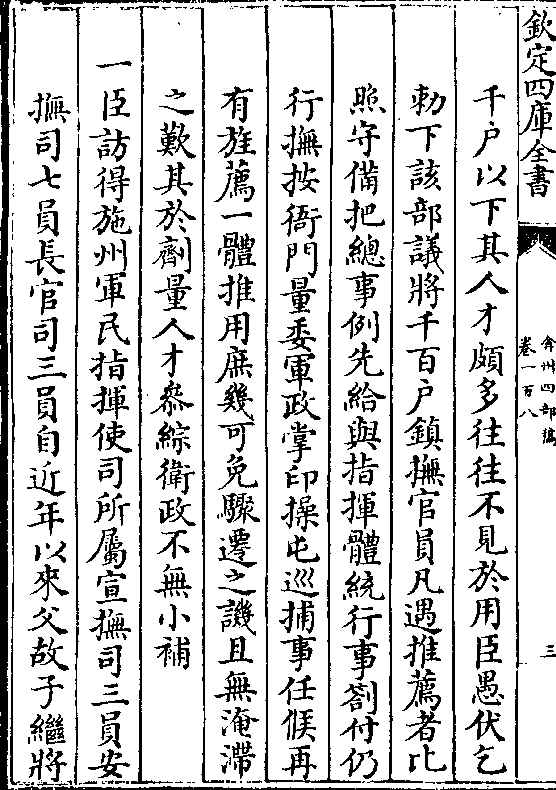 欽定四庫全書
弇州四部稿
卷一百八
三
千户以下其人才頗多往往不見於用臣愚伏乞
勅下該部議將千百户鎮撫官員凡遇推薦者比
照守備把總事例先給與指揮體統行事劄付仍
行撫按衙門量委軍政掌印操屯巡捕事任候再
有旌薦一體推用庶幾可免驟遷之譏且無淹滯
之歎其於劑量人才叅綜衛政不無小補
一臣訪得施州軍民指揮使司所屬宣撫司三員安
撫司七員長官司三員自近年以來父故子繼將